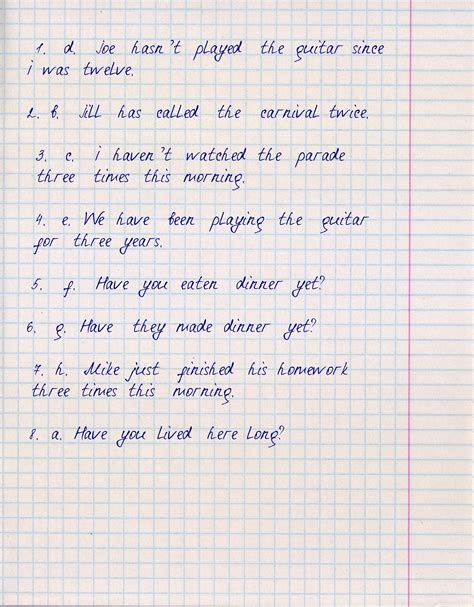 1. d. Joe hasn't played the guitar since
i was twelve.
2. b. Jill has called the carnival twice.
3. c. i haven't watched the parade
three times this morning.
4. e. We have been playing the guitar
for three years.
5. f. Have you eaten dinner yet?
6. g. Have they made dinner yet?
7. h. Mike just finished his homework
three times this morning.
8. a. Have you lived here long?